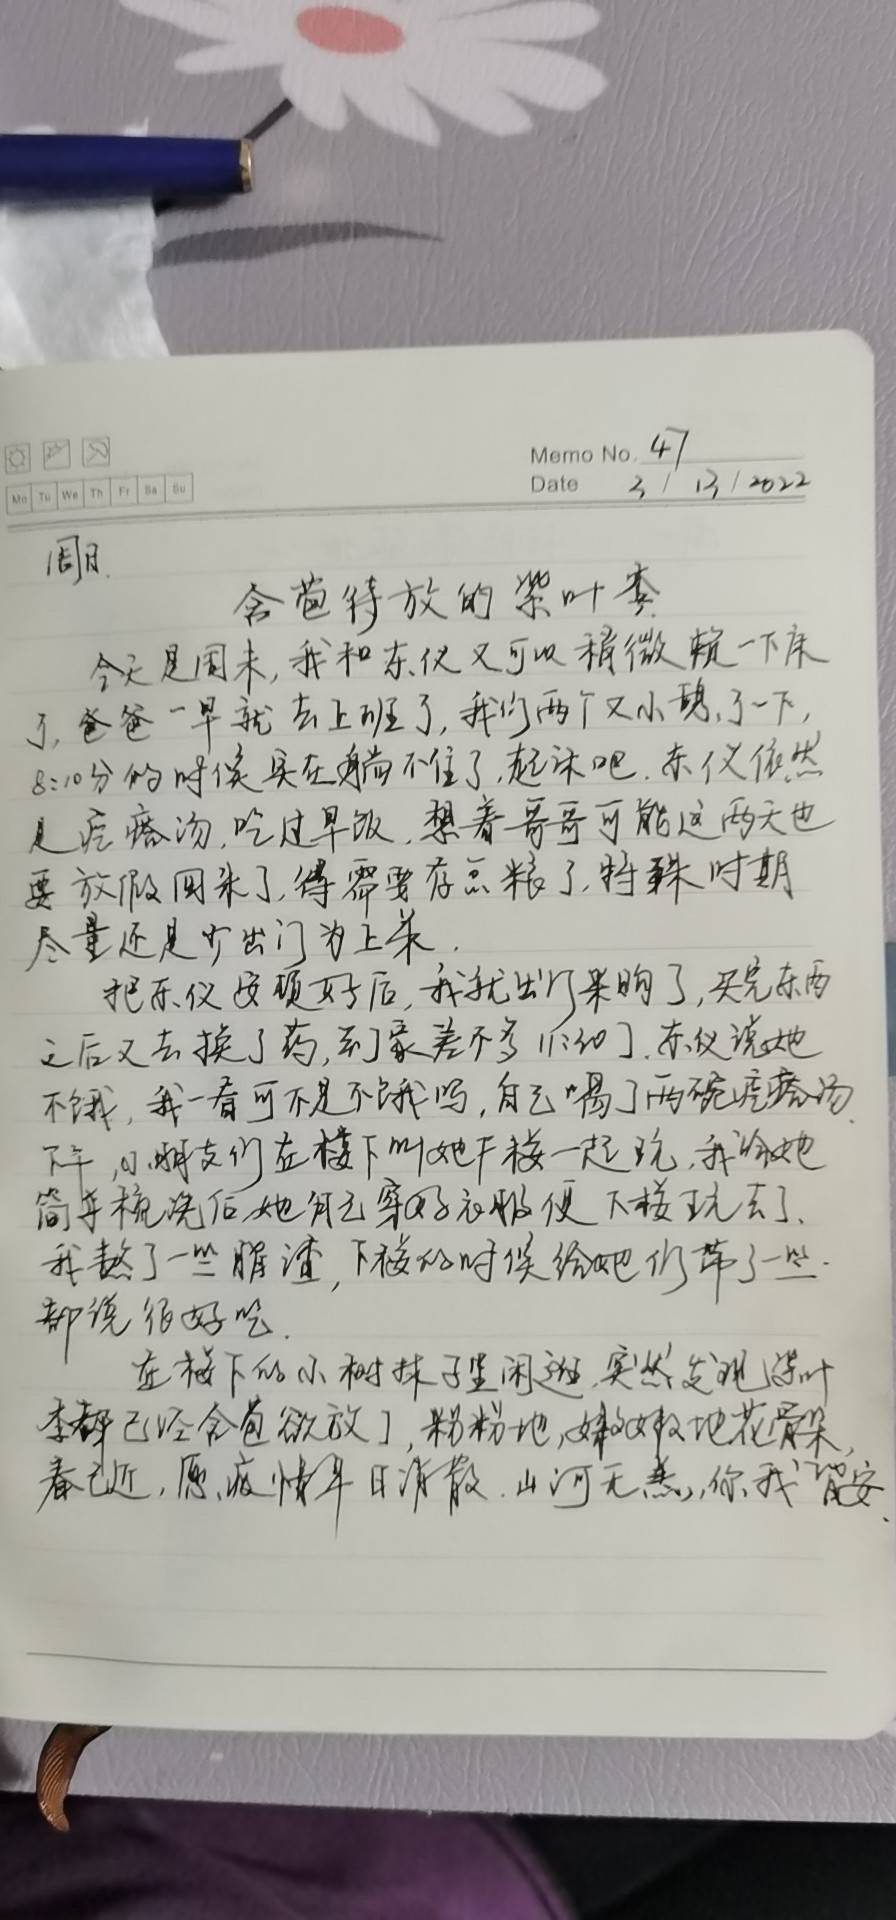 Memo No. 47
Mo Tu We Th Fr Sa Su
Date 3 / 13 / 2022
周日.
含苞待放的紫叶李
今天是周末,我和东仪又可以稍微赖一下床
了,爸爸一早就去上班了,我们两个又小憩了一下,
8:10分的时候实在躺不住了,起床吧.东仪依然
是疙瘩汤,吃过早饭,想着哥哥可能这两天也
要放假回来了,得需要存点粮了,特殊时期
尽量还是少出门为上策.
把东仪安顿好后,我就出门采购了,买完东西
之后又去换了药,到家差不多11:40了.东仪说她
不饿,我一看可不是不饿吗,自己喝了两碗疙瘩汤.
下午,小朋友们在楼下叫她下楼一起玩,我给她
简单梳洗后,她自己穿好衣服便下楼玩去了.
我熬了一些脂渣,下楼的时候给她们带了一些.
都说很好吃.
在楼下的小树林子里闲逛,突然发现紫叶
李都已经含苞欲放了,粉粉地,嫩嫩地花骨朵,
春已近,愿疫情早日消散.山河无恙,你我皆安.